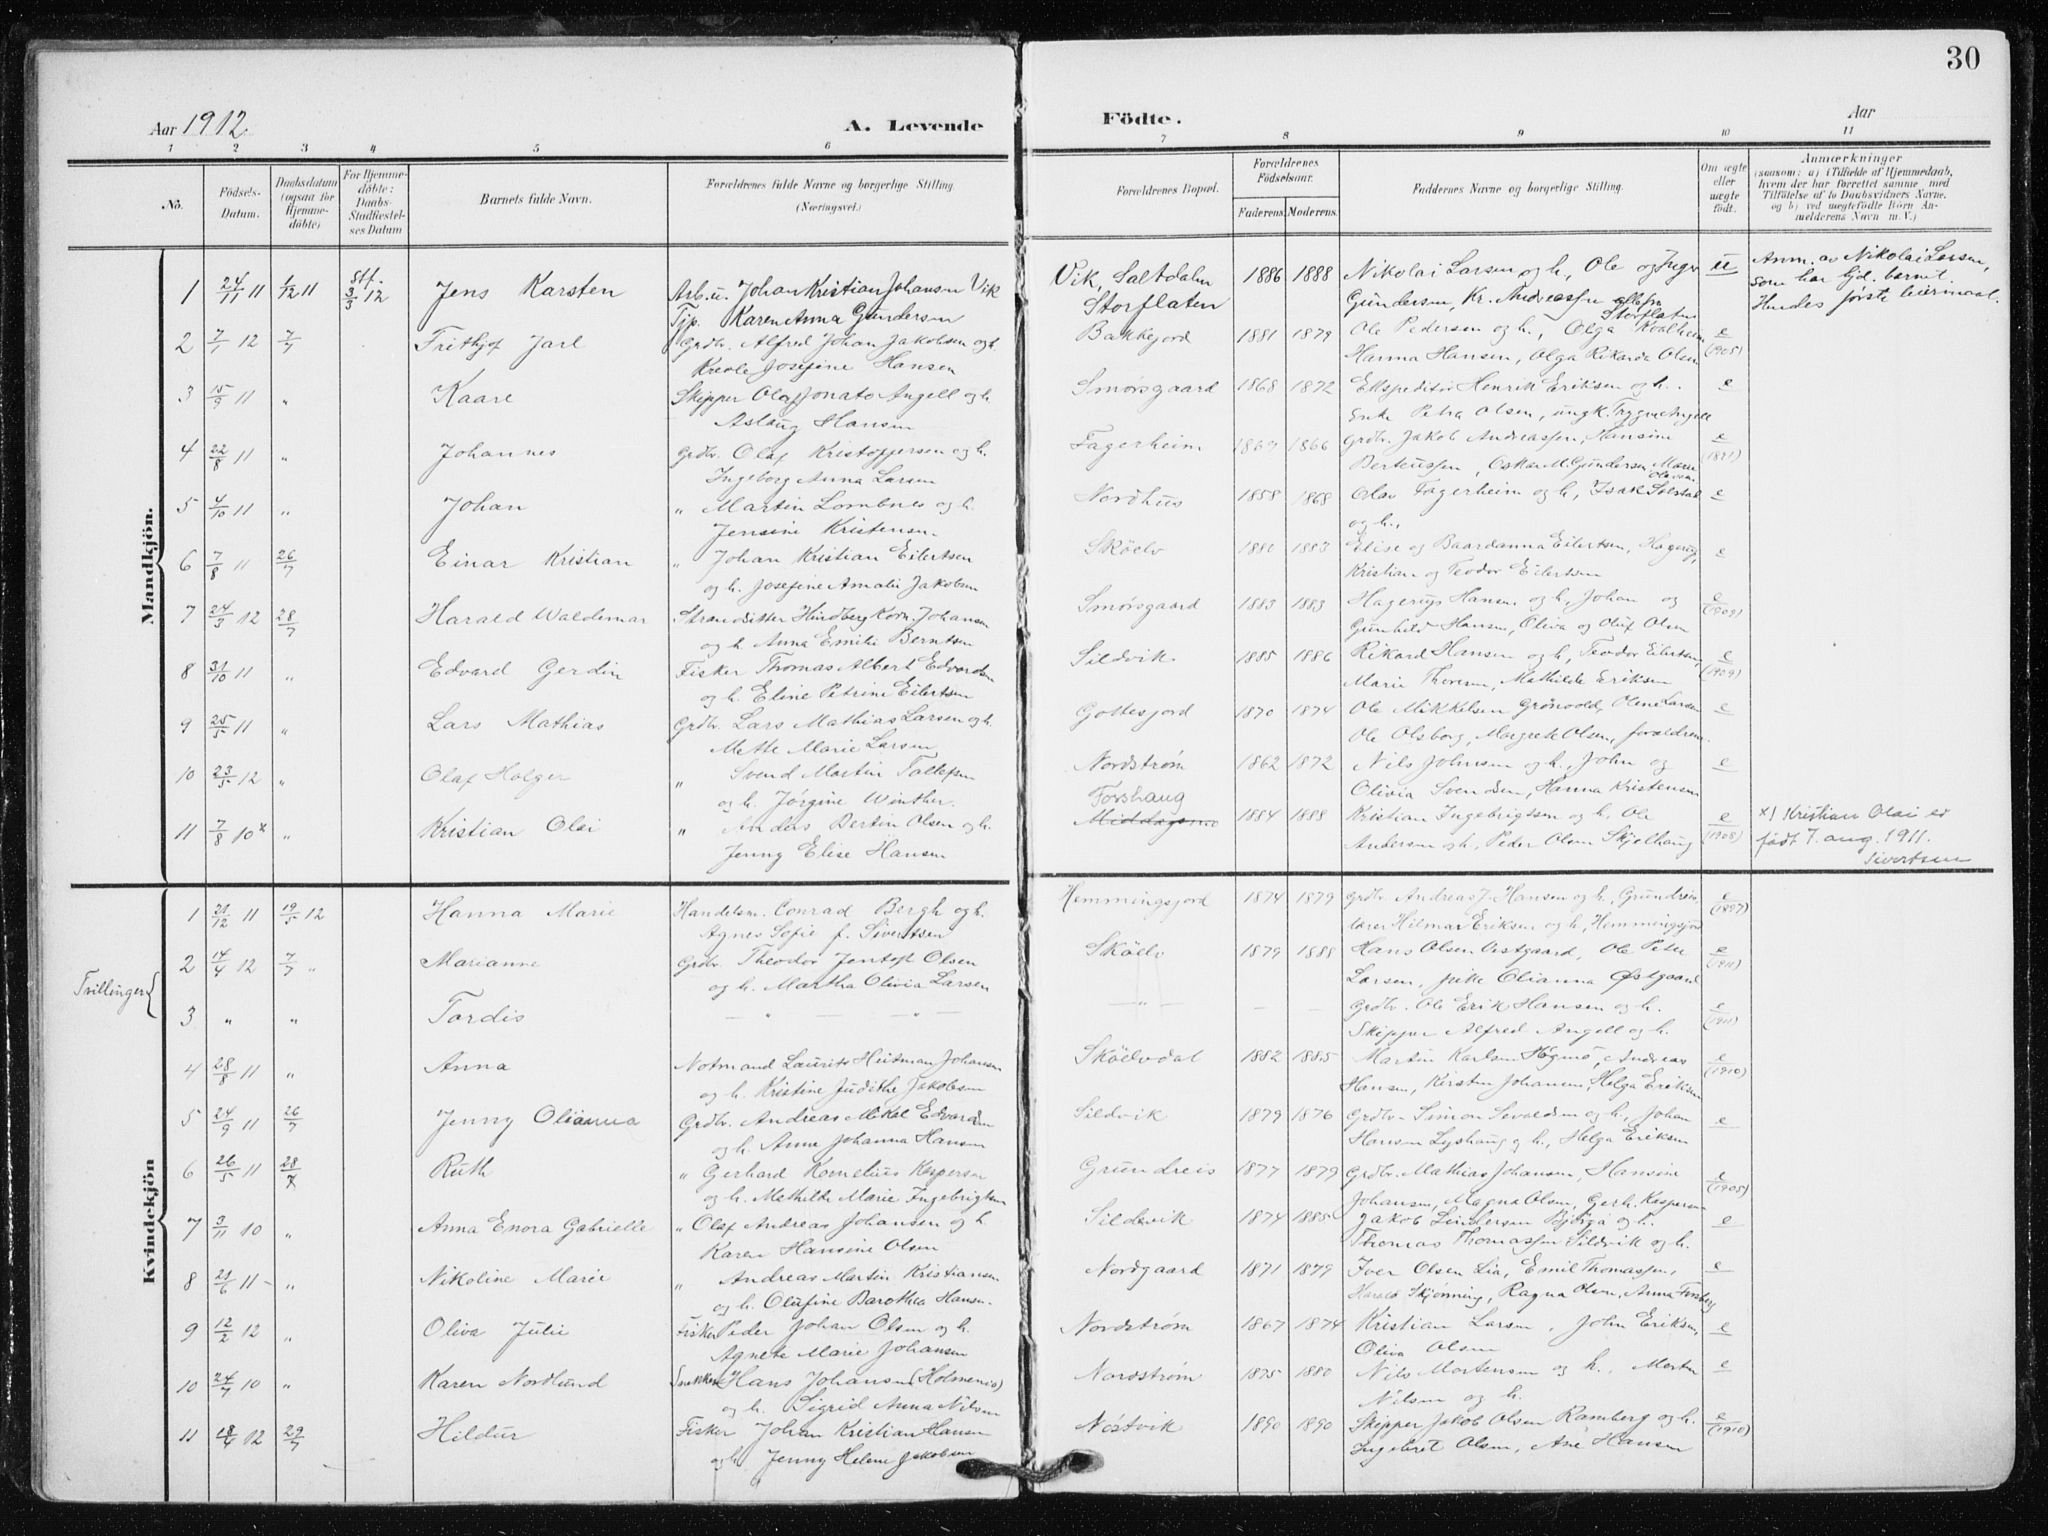 30
Aar 1912
A. Levende
Födte.
Aar
1 2 3 4 5 6 7 8 9 10 11
No.
Födsels-
Datum.
Daabsdatum
(ogsaa for
Hjemme-
döbte)
For Hjemme-
döbte:
Daabs-
Stadfæstel-
ses Datum
Barnets fulde Navn.
Forældrenes fulde Navne og borgerlige Stilling.
(Næringsvei.)
Forældrenes Bopæl.
Forældrenes
Födselsaar.
Faderens. Moderens.
Faddernes Navne og borgerlige Stilling.
Om ægte
eller
uægte
födt.
Anmærkninger
(saasom: a) i Tilfælde af Hjemmedaab,
hvem der har forrettet samme med
Tilföielse af to Daabsvidners Navne,
og b) ved uægtefödte Börn An-
melderens Navn m. V.)
Mandkjön.
1 24/11 11 1/12 11 stf. 3/3 12 Jens Karsten Arb. u. Johan Kristian Johansen Vik
Tjp. Karen Anna Gundersen
Vik, Saltdalen 1886 1888 Nikolai Larsen og h, Ole og Inger u Anm. av Nikolai Larsen,
Storflaten Gundersen, Kr. Andreassen alle fra Storflaten
som har hjd. barnet.
Hendes første leiermaal.
2 7/1 12 7/7 Frithjof Jarl Grdbr. Alfred Johan Jakobsen og h.
Kreole Josefine Hansen
Bakkejord 1881 1879 Ole Pedersen og h, Olga Kvalheim e
Hanna Hansen, Olga Rikarda Olsen (1905)
3 15/9 11 " Kaare Skipper Olaf Jonato Angell og h.
Aslaug Hansen
Smörsgaard 1868 1872 Ekspeditör Henrik Eriksen og h. e
Enke Petra Olsen, ungk. Trygve Angell
4 22/8 11 " Johannes Grdbr. Olaf Kristoffersen og h.
Ingeborg Anna Larsen
Fagerheim 1869 1866 Grdbr. Jakob Andreassen, Hansine e
Berteussen, Oskar M. Gundersen, Maren Olavsen (1891)
5 4/10 11 " Johan " Martin Lombnes og h.
Jensine Kristensen.
Nordhus 1858 1868 Olav Fagerheim og h, Isak Solstad e
og h,
6 7/8 11 26/7 Einar Kristian " Johan Kristian Eilertsen
og h. Josefine Amalie Jakobsen
Sköelv 1880 1883 Elise og Baardanna Eilertsen, Hagerup, e
Kristian og Teodor Eilertsen
7 24/3 12 28/7 Harald Waldemar Strandsitter Hindberg Korn. Johansen
og h. Anna Emilie Berntsen
Smörsgaard 1883 1883 Hagerup Hansen og h, Johan og e
Gunhild Hansen, Oliva og Oluf Olsen (1909)
8 31/10 11 " Edvard Gerdin Fisker Thomas Albert Edvardsen
og h. Eline Petrine Eilertsen
Sildvik 1885 1886 Rikard Hansen og h, Teodor Eilertsen, e
Marie Thoresen, Mathilde Eriksen (1909)
9 25/5 11 " Lars Mathias Grdbr. Lars Mathias Larsen og h.
Mette Marie Larsen
Gottesjord 1870 1874 Ole Mikkelsen Grönvold, Olene Larsen e
Ole Olsborg, Margrete Olsen, forældrene.
10 23/5 12 " Olaf Holger " Svend Martin Tollefsen
og h. Jørgine Winther.
Nordstrøm 1862 1872 Nils Johnsen og h, John og e
Olivia Svendsen, Hanna Kristensen
11 7/8 10x " Kristian Olai " Anders Bertin Olsen og h.
Jenny Elise Hansen
Forshaug
Middagsnes 1884 1888 Kristian Ingebrigtsen og h, Ole e x) Kristian Olai er
Andersen og h, Peder Olsen Skjelhaug (1908) født 7. aug. 1911.
Sivertsen
Kvindekjön
1 21/12 11 19/5 12 Hanna Marie Handelsm. Conrad Bergh og h.
Agnes Sofie f. Sivertsen
Hemmingsjord 1874 1879 Grdbr Andreas J. Hansen og h, Grundreis, e
lærer Hilmar Eriksen og h, Hemmingsjord (1897)
Tvillinger
2 14/4 12 7/7 " Marianne Grdbr. Theodor Jentoft Olsen
og h. Martha Olivia Larsen
Sköelv 1879 1888 Hans Olsen Østgaard, Ole Peter e
Larsen, pike Olianna Østgaard (1911)
3 " " Tordis — " — — " —
— " — — — Grdbr. Ole Erik Hansen og h. e
Skipper Alfred Angell og h. (1911)
4 28/8 11 " Anna Notmand Laurits Heitman Johansen
og h. Kristine Judithe Jakobsen
Sköelvdal 1882 1885 Martin Karlsen Högmo, Andreas e
Hansen, Kirsten Johansen, Helga Eriksen (1910)
5 24/9 11 26/7 Jenny Olianna Grdbr. Andreas Mikal Edvardsen
og h. Anna Johanna Hansen
Sildvik 1879 1876 Grdbr- Simon Sivaldsen og h, Johan e
Hansen Lyshaug og h., Helga Eriksen
6 26/5 11 28/7 Ruth " Gerhard Kornelius Kaspersen
og h. Mathilde Marie Ingebrigtsen
Grundreis 1877 1879 Grdbr. Mathias Johansen, Hansine e
Johansen, Magna Olsen, Gerh. Kaspersen (1905)
7 3/11 10 " Anna Enora Gabrielle " Olaf Andreas Johansen og h
Karen Hansine Olsen
Sildvik 1874 1885 Jakob Lindersen Bjorga og h. e
Thomas Thomassen Sildvik og h.
8 21/6 11 – " Nikoline Marie " Andreas Martin Kristiansen
og h. Olufine Barothea Hansen.
Nordgaard 1871 1879 Iver Olsen Lia, Emil Thomassen, e
Harald Skjønning, Ragna Olsen, Anna Forsberg
9 12/2 12 " Oliva Julie Fisker Peder Johan Olsen og h.
Agnete Marie Johansen
Nordstrøm 1867 1874 Kristian Larsen, John Eriksen, e
Oliva Olsen
10 24/7 10 " Karen Nordlund Snekker Hans Johansen (Holmenes)
og h. Sigrid Anna Nilsen
Nordstrøm 1875 1880 Nils Mortensen og h., Morten e
Nilsen og h.
11 18/4 12 29/7 Hildur Fisker Johan Kristian Hansen
og h. Jenny Helene Jakobsen
Nøstvik 1890 1890 Skipper Jakob Olsen Ramberg og h. e
Ingebret Olsen, Ane Hansen (1910)